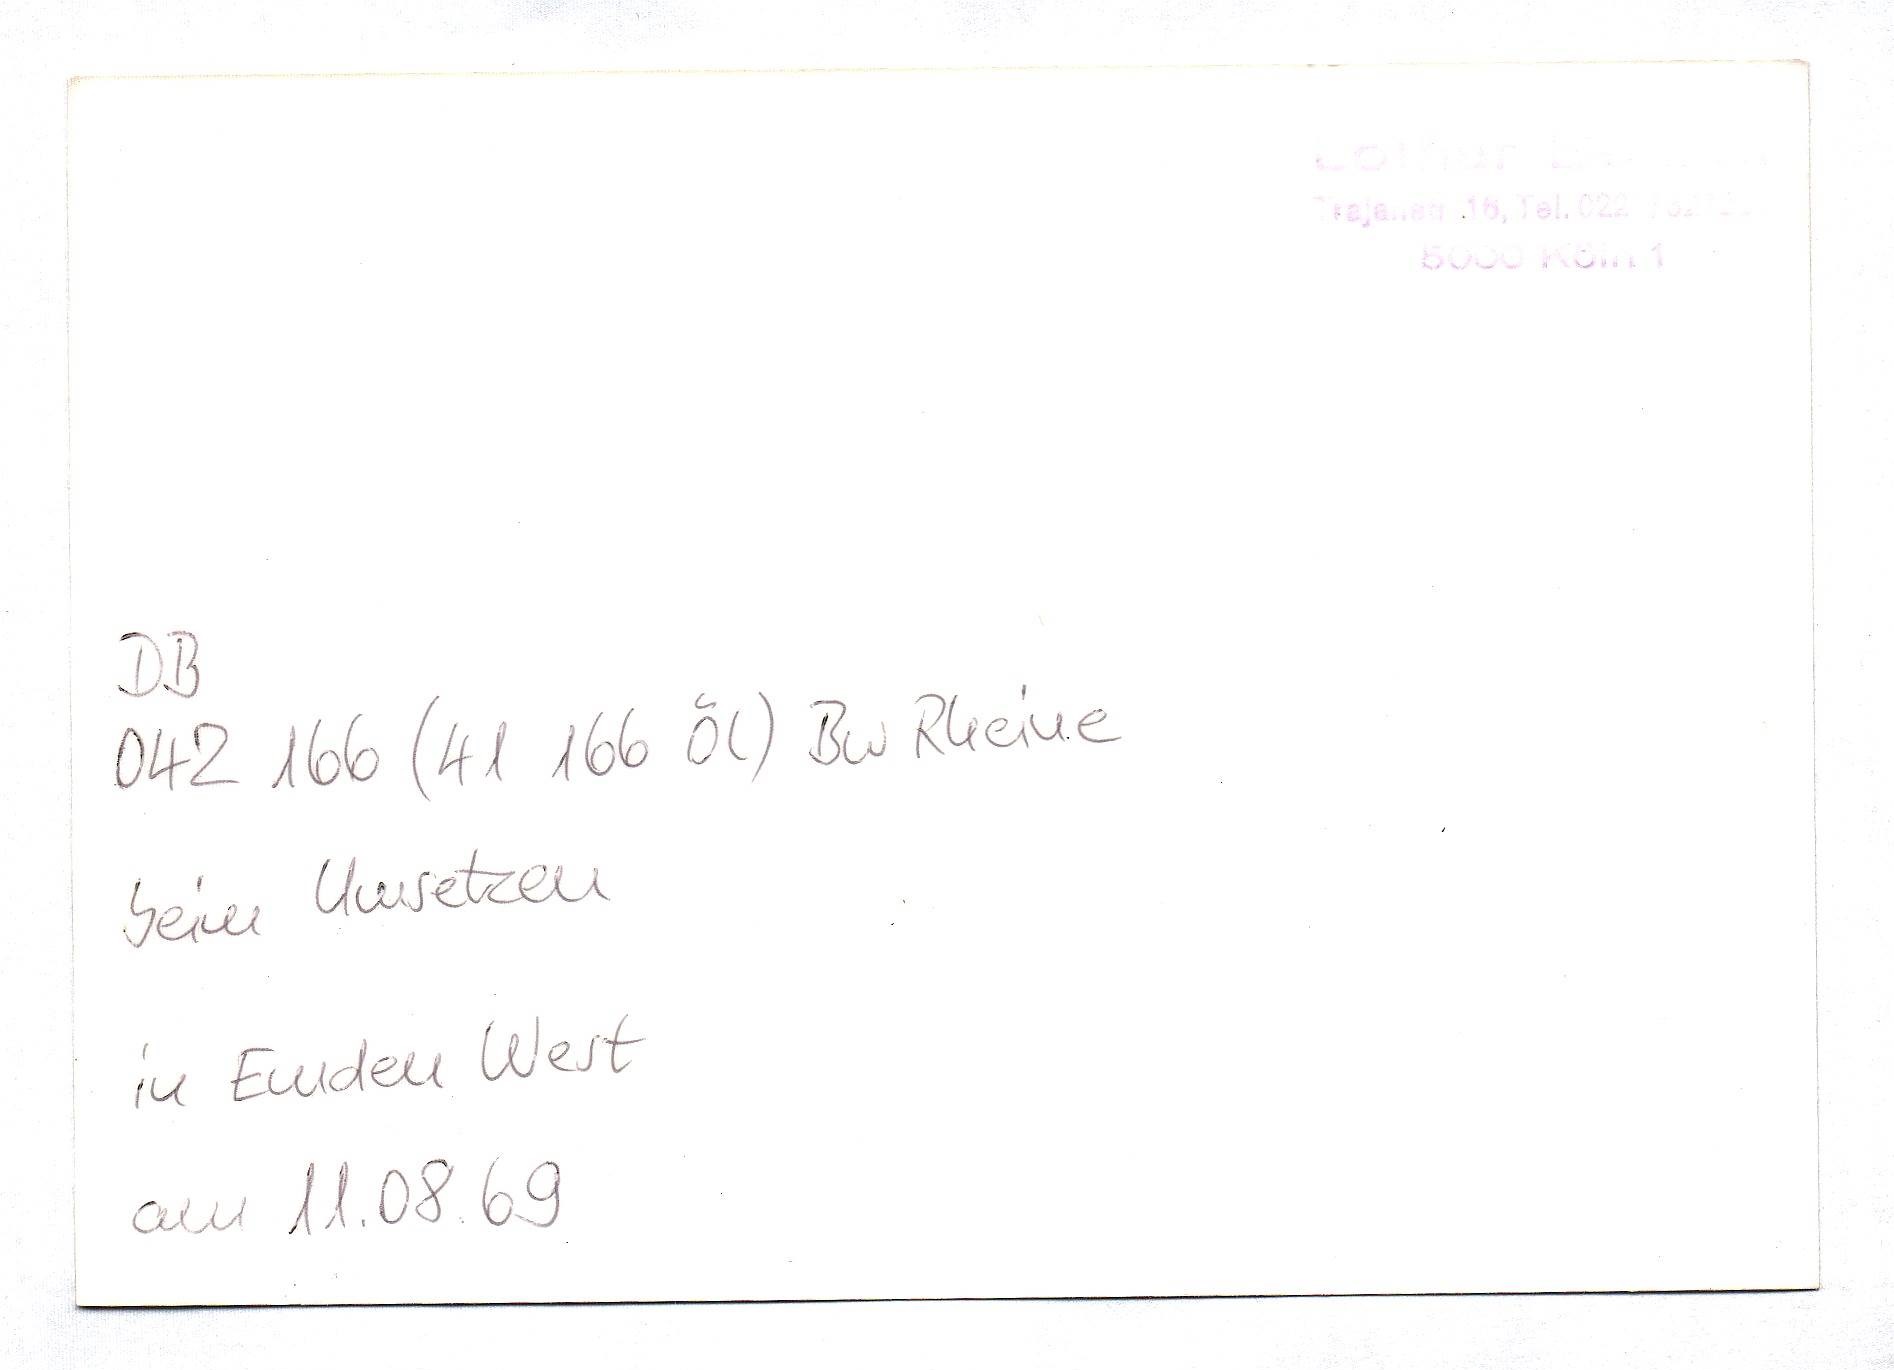 Lothar
16, Tel. 022
5000 Köln 1
DB
042 166 (41 166 Öl) Bw Rheine
beim Umsetzen
in Emden West
am 11.08.69